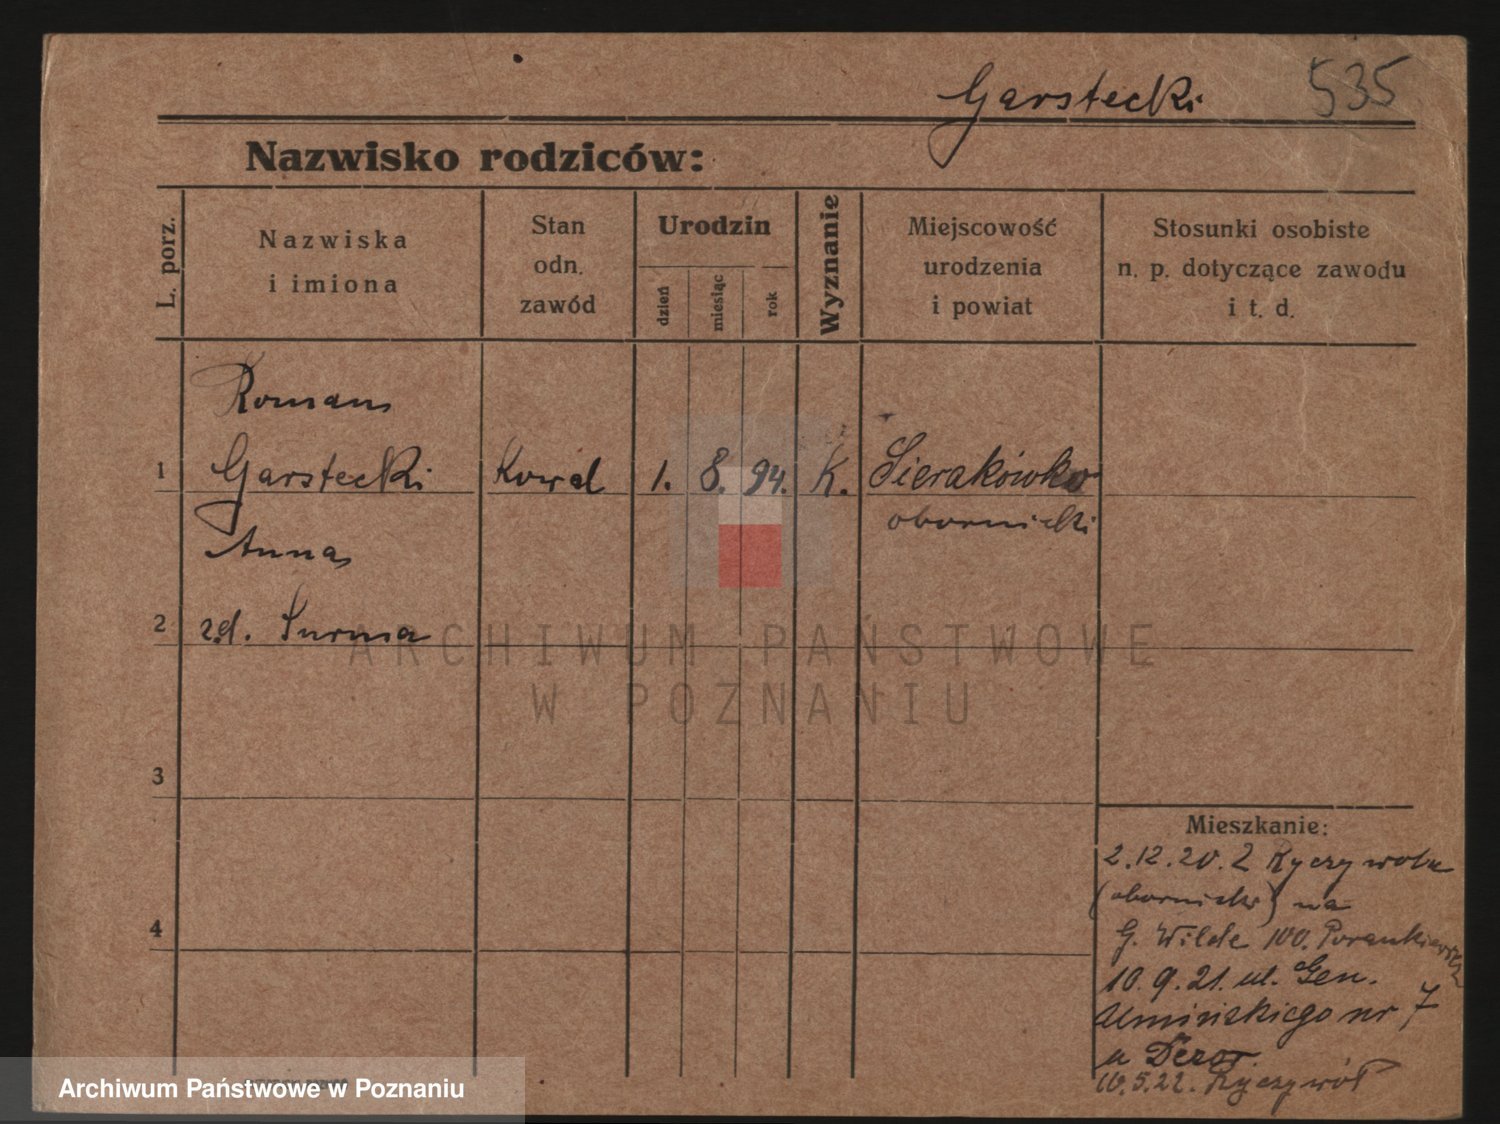 Garstecki 535
Nazwisko rodziców:
L. porz.
Nazwiska
i imiona
Stan
odn.
zawód
Urodzin
dzień
miesiąc
rok
Wyznanie
Miejscowość
urodzenia
i powiat
Stosunki osobiste
n. p. dotyczące zawodu
i t. d.
Roman
1 Garstecki Kowal 1. 8. 94. K. Sierakówko
obornicki
Anna
2 zd. Surma
ARCHIWUM PAŃSTWOWE
W POZNANIU
3
4
Mieszkanie:
2.12.20. Z Ryczywołu
(obornicki) na
G. Wilde 100.
10.9.21. ul. Gen.
Umińskiego nr 7
u
10.5.22. Ryczywół
Archiwum Państwowe w Poznaniu